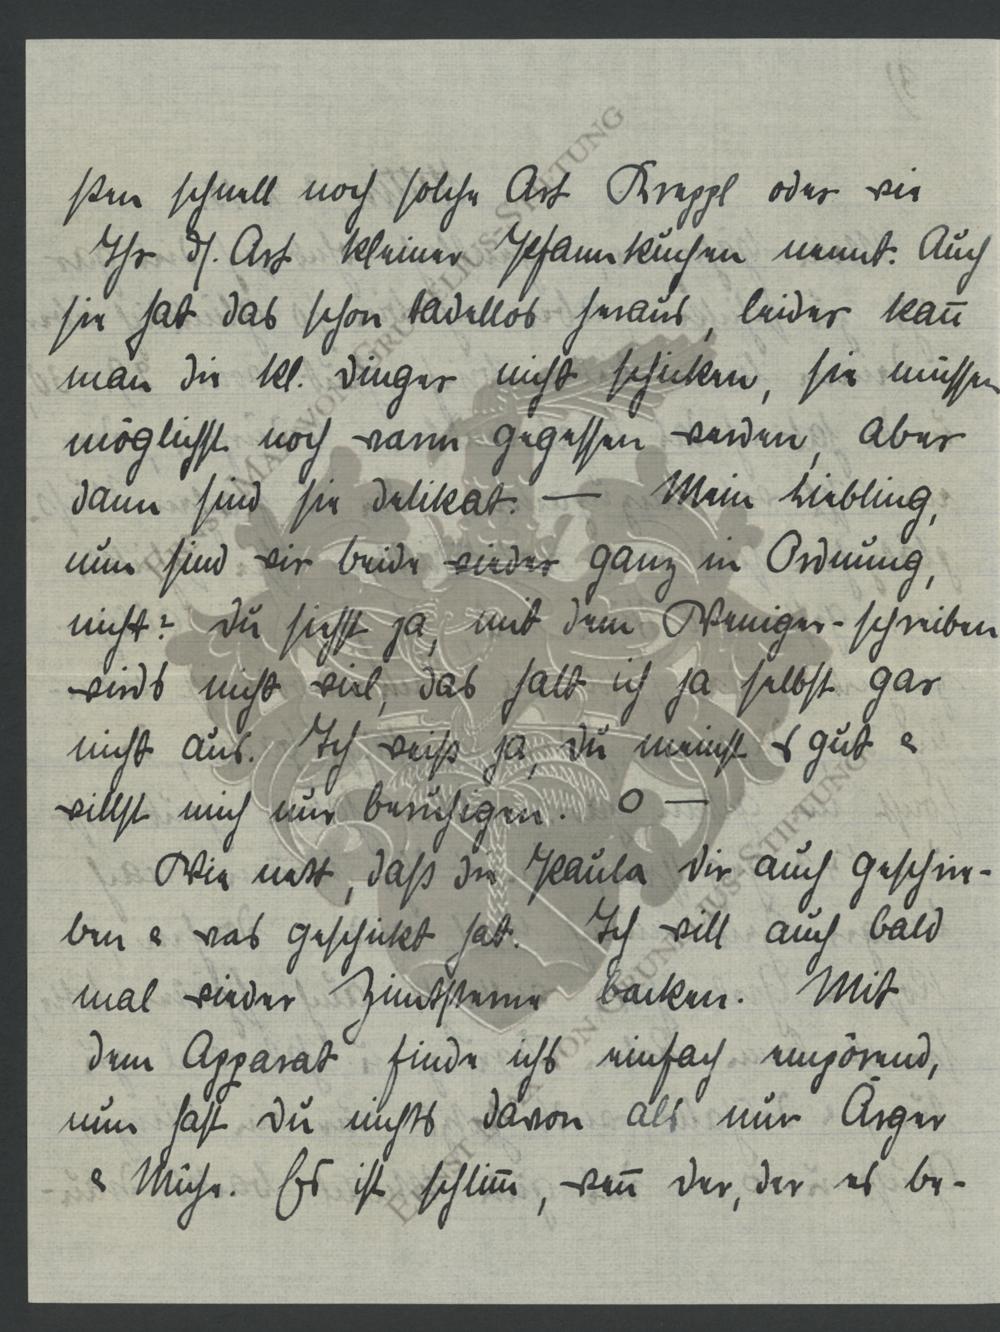 sten schnell noch solche Art Kreppl oder wie
Ihr d. Art kleiner Pfannkuchen nennt. Auch
sie hat das schon tadellos heraus, leider kan̅
man die kl. Dinger nicht schicken, sie müssen
möglichst noch warm gegessen werden, aber
dann sind sie delikat. — Mein Liebling,
nun sind wir beide wieder ganz in Ordnung,
nicht? Du siehst ja, mit dem Weniger-schreiben
wirds nicht viel, das halt ich ja selbst gar
nicht aus. Ich weiß ja, Du meinst es gut &
willst mich nur beruhigen. O —
Wie nett, daß die Paula Dir auch geschrie-
ben & was geschickt hat. Ich will auch bald
mal wieder Zimtsterne backen. Mit
dem Apparat finde ichs einfach empörend,
nun hast Du nichts davon als nur Ärger
& Mühe. Es ist schlim̅, wen̅ der, der es be-